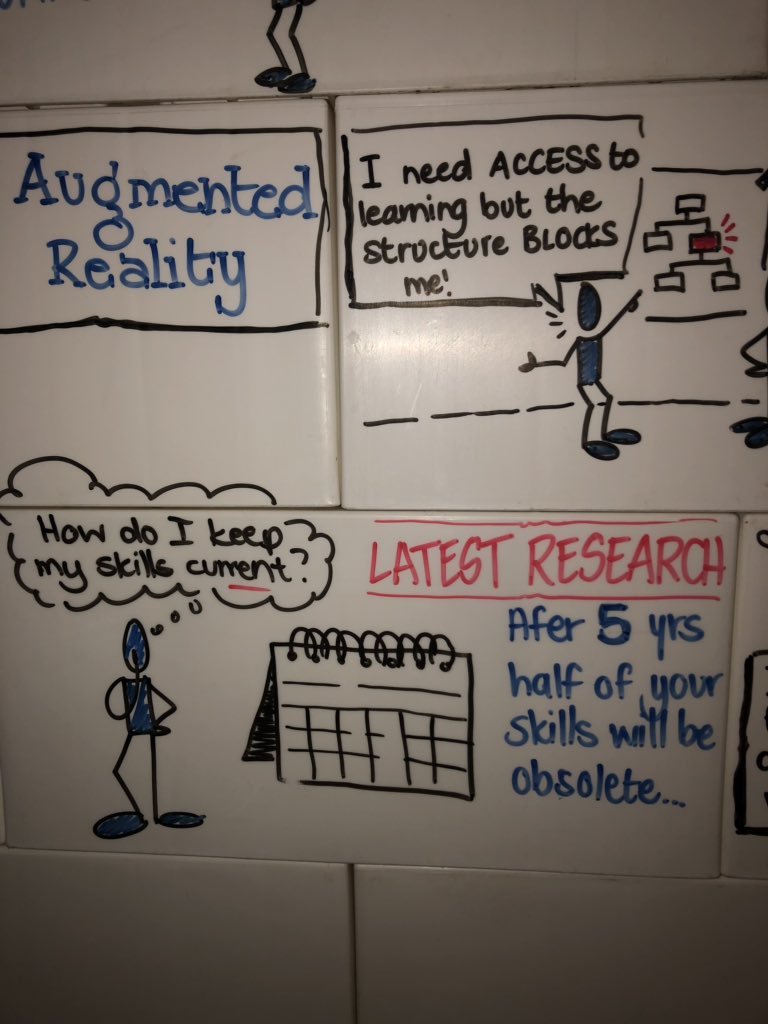 Augmented
Reality
I need ACCESS to
learning but the
structure BLOCKS
me!
How do I keep
my skills current?
LATEST RESEARCH
Afer 5 yrs
half of your
skills will be
obsolete...